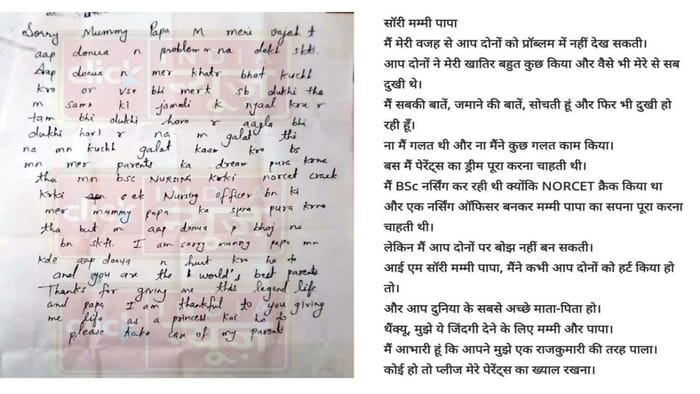 Sorry Mummy Papa M meri vajah t
aap donua n problem m na dekh skti.
Aap donua n mer khatr bhot kuchh
kro or vse bhi mert sb dukhi tha
m sama ki jamati k kru r
tam bhi dukhi r aagla bhi
dukhi hori r na m galat thi
na mn kuchh galat kaam kro bs
mn mer parents ka dream pura krna
tha mn bsc NURSING krki norcet crack
krki ek Nursing officer bn ki
mer mummy papa ka sapna pura krna
tha but m aap donua p bhoj na
bn skti. I am sorry mummy papa mn
kde aap donua n hurt kra ho to
and you are the world's best parents
Thanks for giving me this legend life
and papa I am thankful to you giving
me life as a princess koi ho to
please take care of my parents
click
INDIA
सॉरी मम्मी पापा
मैं मेरी वजह से आप दोनों को प्रॉब्लम में नहीं देख सकती।
आप दोनों ने मेरी खातिर बहुत कुछ किया और वैसे भी मेरे से सब
दुखी थे।
मैं सबकी बातें, जमाने की बातें, सोचती हूं और फिर भी दुखी हो
रही हूँ।
ना मैं गलत थी और ना मैंने कुछ गलत काम किया।
बस मैं पेरेंट्स का ड्रीम पूरा करना चाहती थी।
मैं BSc नर्सिंग कर रही थी क्योंकि NORCET क्रैक किया था
और एक नर्सिंग ऑफिसर बनकर मम्मी पापा का सपना पूरा करना
चाहती थी।
लेकिन मैं आप दोनों पर बोझ नहीं बन सकती।
आई एम सॉरी मम्मी पापा, मैंने कभी आप दोनों को हर्ट किया हो
तो।
और आप दुनिया के सबसे अच्छे माता-पिता हो।
थैंक्यू, मुझे ये जिंदगी देने के लिए मम्मी और पापा।
मैं आभारी हूं कि आपने मुझे एक राजकुमारी की तरह पाला।
कोई हो तो प्लीज मेरे पेरेंट्स का ख्याल रखना।